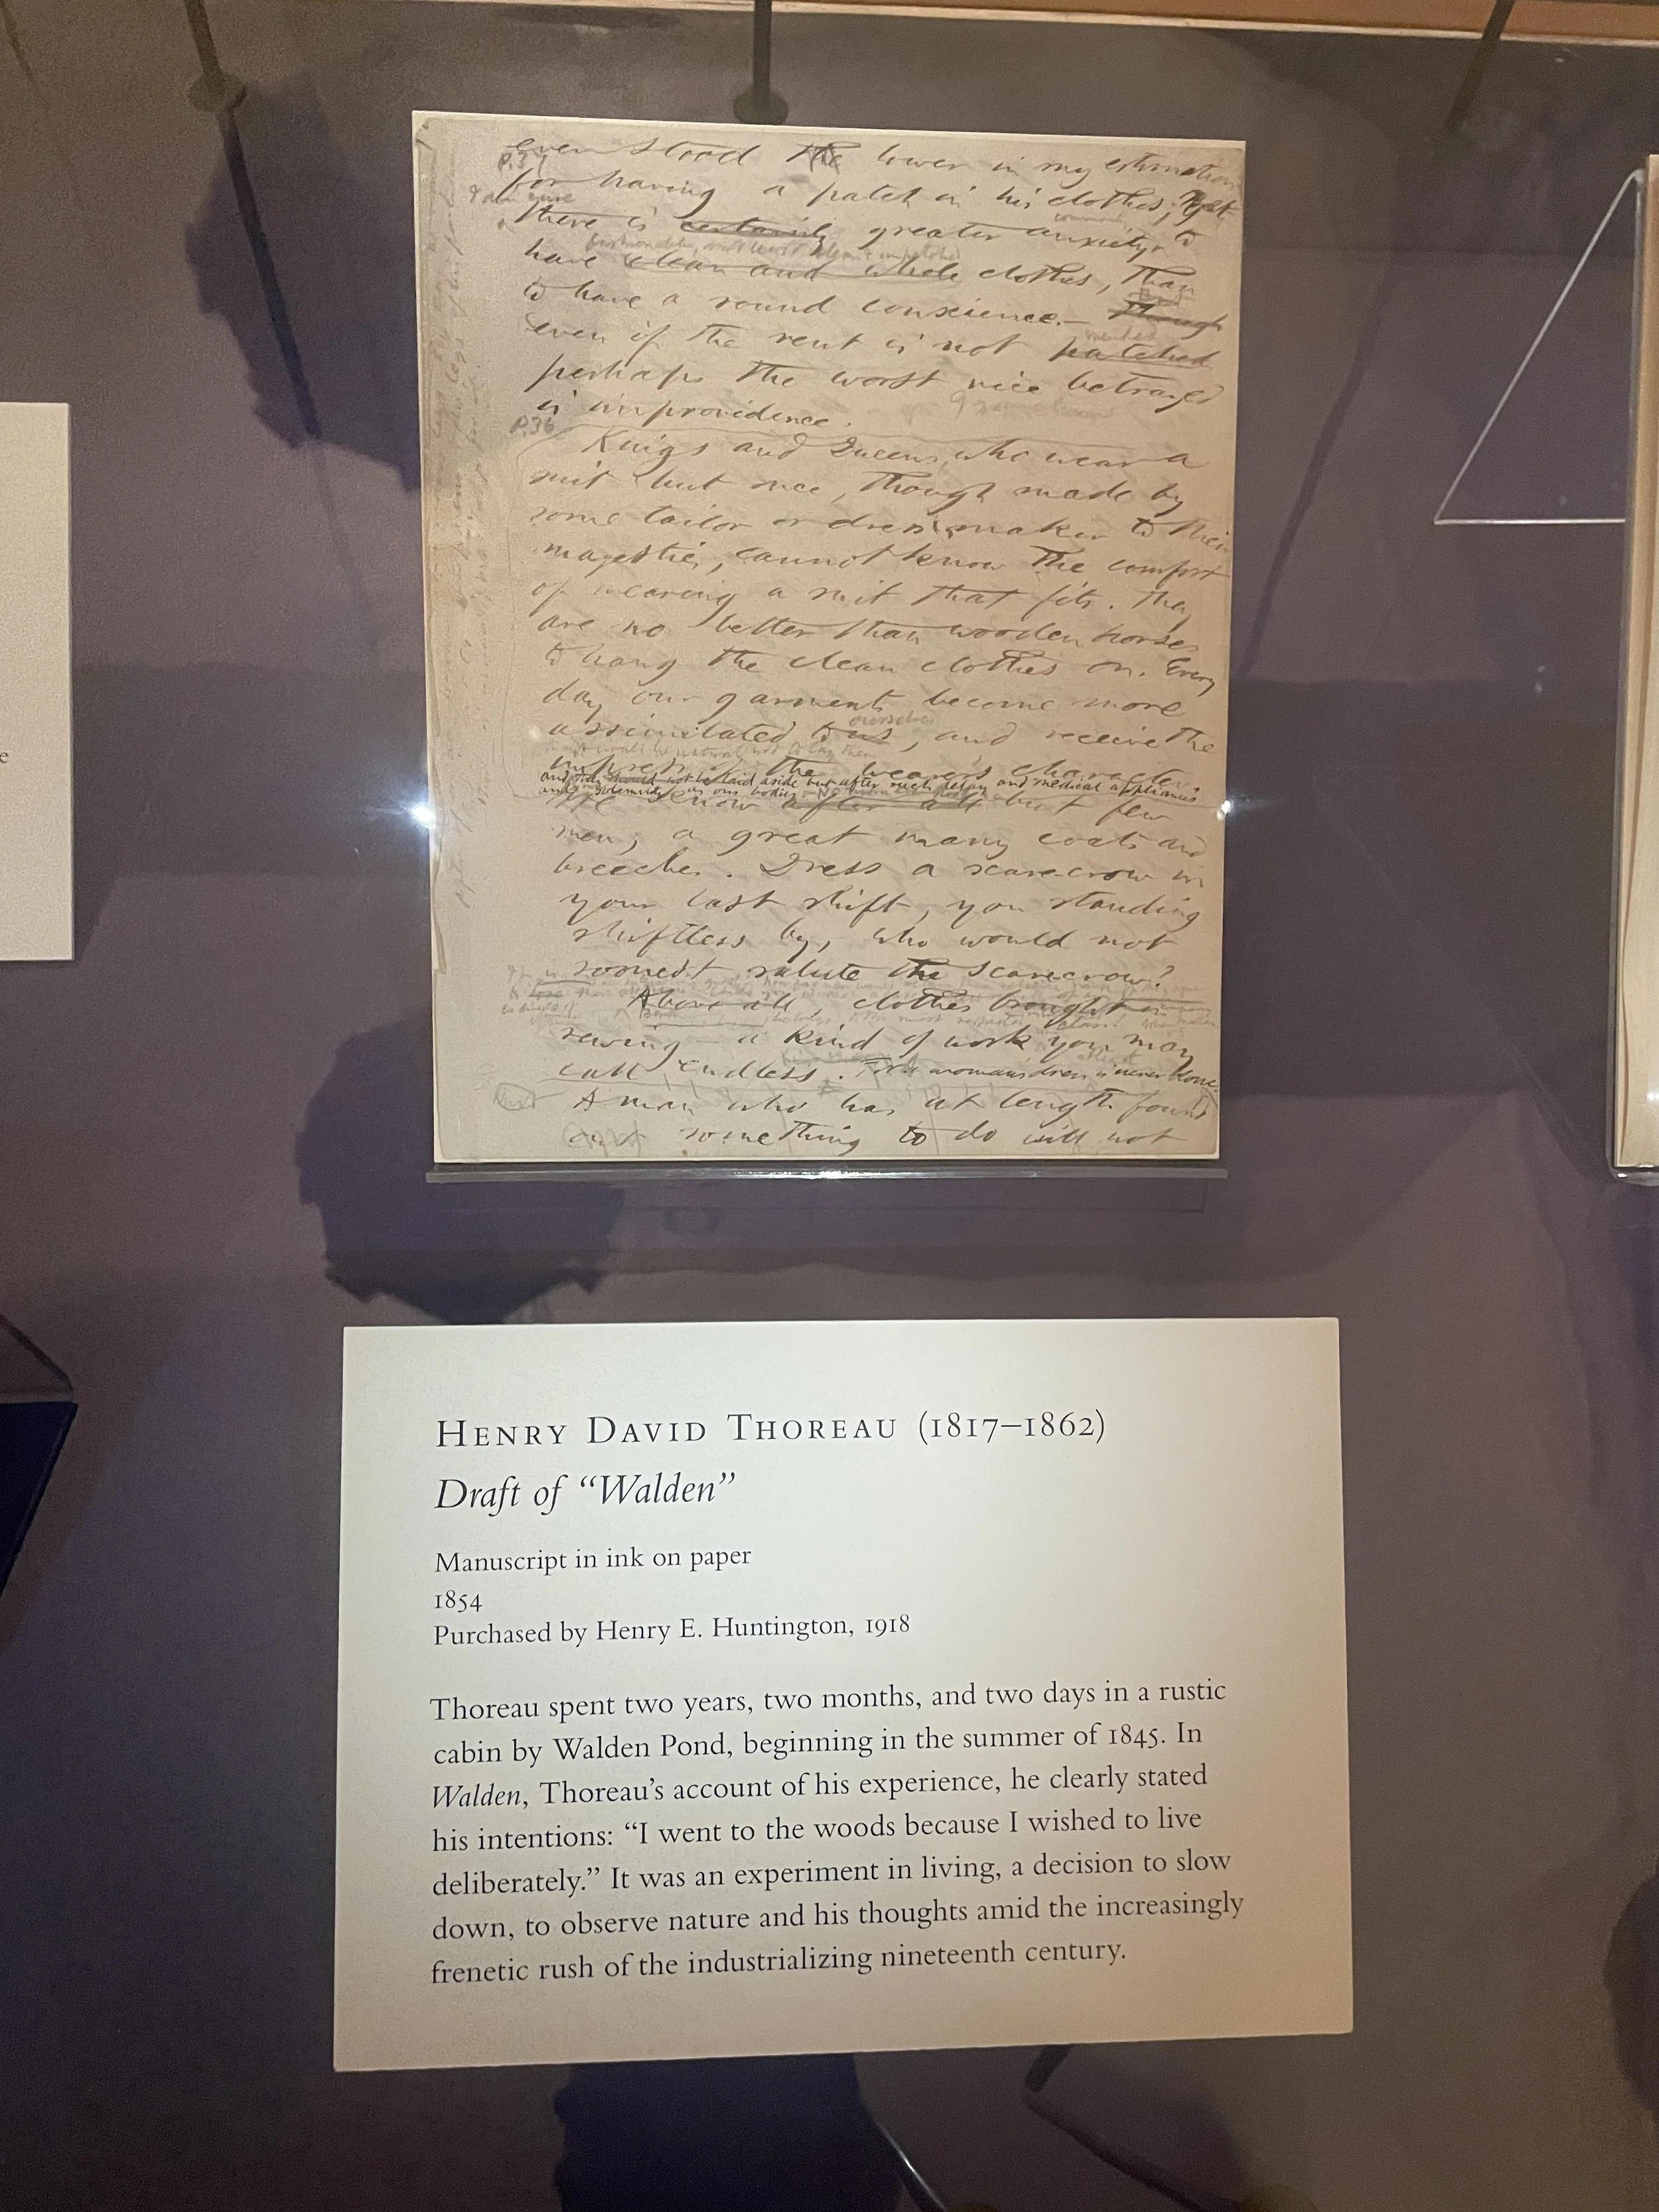 even stood the lower in my estimation
P.37
for having a patch in his clothes; yet
& I am sure
there is certainly greater anxiety, to
commonly
fashionable, or at least clean & unpatched
have clean and whole clothes, than
to have a sound conscience.— Though
But
even if the rent is not patched
mended
perhaps the worst vice betrayed
is improvidence.
P.36
Kings and Queens, who wear a
suit but once, though made by
some tailor or dressmaker to their
majesties, cannot know the comfort
of wearing a suit that fits. They
are no better than wooden horses
to hang the clean clothes on. Every
day our garments become more
assimilated to us, and receive the
ourselves
impress of the wearer's character.
and should not be laid aside but after such delay and medical appliances
and solemnity as our bodies.
We know after all but few
men, a great many coats and
breeches. Dress a scarecrow in
your last shift, you standing
shiftless by, who would not
soonest salute the scarecrow?
Above all, clothes brought in
sewing — a kind of work you may
call endless. woman's dress is never done.
at least
A man who has at length found
out something to do will not
e
HENRY DAVID THOREAU (1817–1862)
Draft of “Walden”
Manuscript in ink on paper
1854
Purchased by Henry E. Huntington, 1918
Thoreau spent two years, two months, and two days in a rustic
cabin by Walden Pond, beginning in the summer of 1845. In
Walden, Thoreau’s account of his experience, he clearly stated
his intentions: “I went to the woods because I wished to live
deliberately.” It was an experiment in living, a decision to slow
down, to observe nature and his thoughts amid the increasingly
frenetic rush of the industrializing nineteenth century.